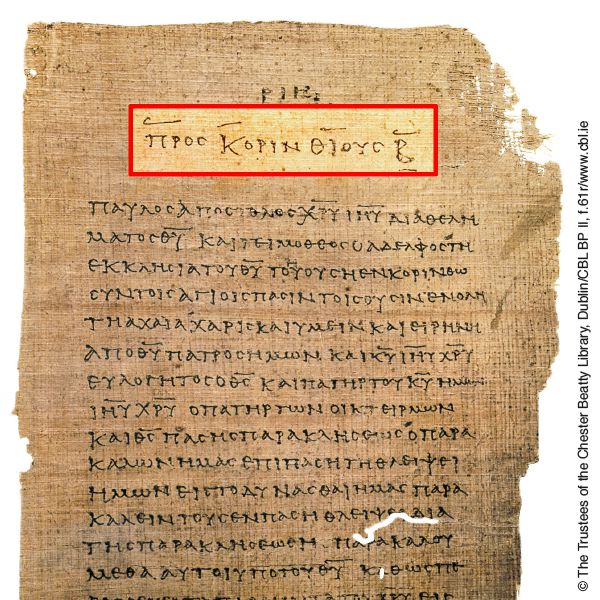 ΡΙΕ
ΠΡΟС ΚΟΡΙΝΘΙΟΥС Β̅
ΠΑΥΛΟСΑΠΟСΤΟΛΟС Χ̅Ρ̅Υ̅ Ι̅Η̅Υ̅ ΔΙΑΘΕΛΗ
ΜΑΤΟС Θ̅Υ̅ ΚΑΙΤΕΙΜΟΘΕΟСΟΑΔΕΛΦΟСΤΗ
ΕΚΚΛΗСΙΑΤΟΥ Θ̅Υ̅ ΤΟΥΟΥСΗΕΝΚΟΡΙΝΘω
СΥΝΤΟΙСΑΓΙΟΙСΠΑСΙΝΤΟΙСΟΥСΙΝΕΝΟΛΗ
ΤΗΑΧΑΙΑΧΑΡΙСΚΑΙΥΜΕΙΝΚΑΙΕΙΡΗΝΗ
ΑΠΟ Θ̅Υ̅ ΠΑΤΡΟСΗΜωΝ ΚΑΙ Κ̅Υ̅ Ι̅Η̅Υ̅ Χ̅Ρ̅Υ̅
ΕΥΛΟΓΗΤΟСΟ Θ̅С̅ ΚΑΙΠΑΤΗΡΤΟΥ Κ̅Υ̅ ΗΜωΝ
Ι̅Η̅Υ̅ Χ̅Ρ̅Υ̅ ΟΠΑΤΗΡΤωΝΟΙΚΤΕΙΡΜωΝ
ΚΑΙ Θ̅С̅ ΠΑСΗСΠΑΡΑΚΛΗСΕωСΟΠΑΡΑ
ΚΑΛωΝΗΜΑСΕΠΙΠΑСΗΤΗΘΛΕΙΨΕΙ
ΗΜωΝΕΙСΤΟΔΥΝΑСΘΑΙΗΜΑСΠΑΡΑ
ΚΑΛΕΙΝΤΟΥСΕΝΠΑСΗΘΛΕΙΨΕΙΔΙΑ
ΤΗСΠΑΡΑΚΛΗСΕωСΗС ΠΑΡΑΚΑΛΟΥ
ΜΕΘΑΑΥΤΟΙΥΠΟΤΟΥ Θ̅Υ̅ ΚΑΘωСΠΕ
© The Trustees of the Chester Beatty Library, Dublin/CBL BP II, f.61r/www.cbl.ie